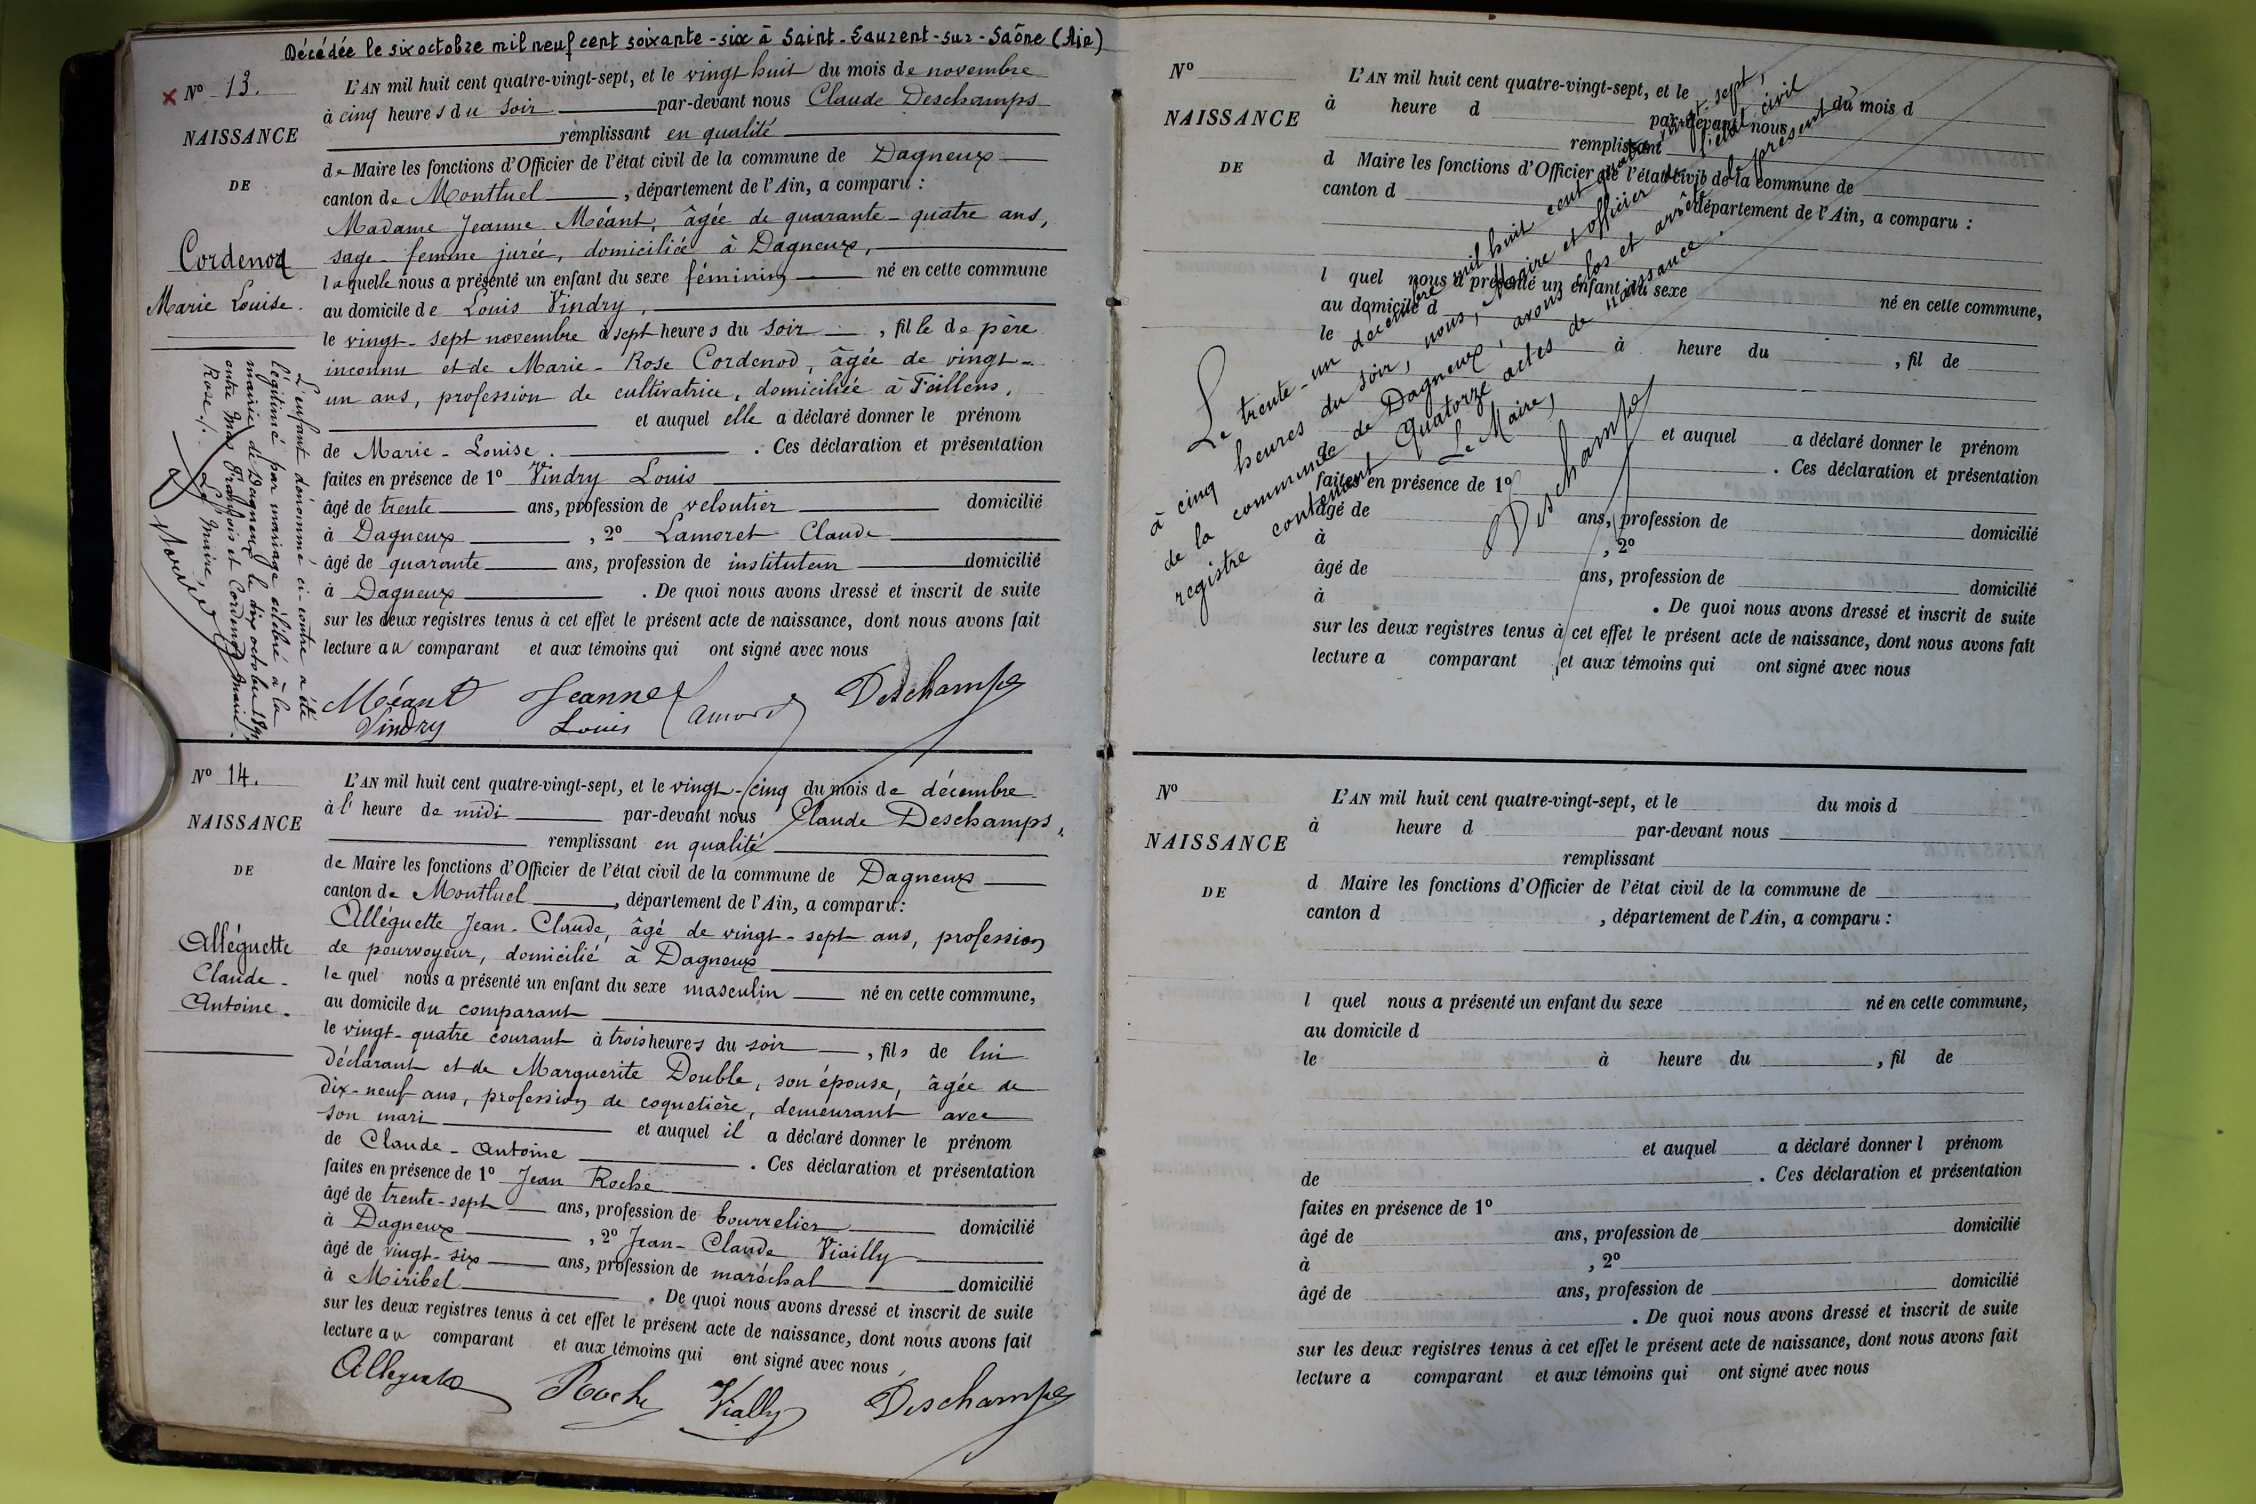 Décédée le six octobre mil neuf cent soixante-six à Saint-Laurent-sur-Saône (Ain)
N° 13.
NAISSANCE
DE
Cordenod
Marie Louise.
L'AN mil huit cent quatre-vingt-sept, et le vingt huit du mois de novembre
à cinq heures du soir par-devant nous Claude Deschamps
remplissant en qualité
de Maire les fonctions d'Officier de l'état civil de la commune de Dagneux
canton de Montluel, département de l'Ain, a comparu :
Madame Jeanne Méant, âgée de quarante-quatre ans,
sage-femme jurée, domiciliée à Dagneux,
laquelle nous a présenté un enfant du sexe féminin né en cette commune
au domicile de Louis Vindry,
le vingt-sept novembre à sept heures du soir, fille de père
inconnu et de Marie-Rose Cordenod, âgée de vingt-
un ans, profession de cultivatrice, domiciliée à Faillens,
et auquel elle a déclaré donner le prénom
de Marie-Louise. Ces déclaration et présentation
faites en présence de 1° Vindry Louis
âgé de trente ans, profession de veloutier domicilié
à Dagneux, 2° Lamoret Claude
âgé de quarante ans, profession de instituteur domicilié
à Dagneux. De quoi nous avons dressé et inscrit de suite
sur les deux registres tenus à cet effet le présent acte de naissance, dont nous avons fait
lecture au comparant et aux témoins qui ont signé avec nous
Méant Jeanne Lamoret Deschamps
Vindry Louis
L'enfant dénommé ci-contre a été
légitimé par mariage célébré à la
mairie de Dagneux le dix octobre 1891,
entre Mas François et Cordenod Marie-
Rose ./.
Le Maire,
N° 14.
NAISSANCE
DE
Alléguette
Claude-
Antoine.
L'AN mil huit cent quatre-vingt-sept, et le vingt-cinq du mois de décembre
à l'heure de midi par-devant nous Claude Deschamps,
remplissant en qualité
de Maire les fonctions d'Officier de l'état civil de la commune de Dagneux
canton de Montluel, département de l'Ain, a comparu :
Alléguette Jean-Claude, âgé de vingt-sept ans, profession
de pourvoyeur, domicilié à Dagneux
lequel nous a présenté un enfant du sexe masculin né en cette commune,
au domicile du comparant
le vingt-quatre courant à trois heures du soir, fils de lui
déclarant et de Marguerite Double, son épouse, âgée de
dix-neuf ans, profession de coquetière, demeurant avec
son mari et auquel il a déclaré donner le prénom
de Claude-Antoine. Ces déclaration et présentation
faites en présence de 1° Jean Roche
âgé de trente-sept ans, profession de bourrelier domicilié
à Dagneux, 2° Jean-Claude Viailly
âgé de vingt-six ans, profession de maréchal domicilié
à Miribel. De quoi nous avons dressé et inscrit de suite
sur les deux registres tenus à cet effet le présent acte de naissance, dont nous avons fait
lecture au comparant et aux témoins qui ont signé avec nous,
Roche Vially Deschamps
N°
NAISSANCE
DE
L'AN mil huit cent quatre-vingt-sept, et le du mois d
à heure d par-devant nous
remplissant
d Maire les fonctions d'Officier de l'état civil de la commune de
canton d, département de l'Ain, a comparu :
l quel nous a présenté un enfant du sexe né en cette commune,
au domicile d
le à heure du, fil de
et auquel a déclaré donner le prénom
de. Ces déclaration et présentation
faites en présence de 1°
âgé de ans, profession de domicilié
à, 2°
âgé de ans, profession de domicilié
à. De quoi nous avons dressé et inscrit de suite
sur les deux registres tenus à cet effet le présent acte de naissance, dont nous avons fait
lecture a comparant et aux témoins qui ont signé avec nous
Le trente-un décembre mil huit cent quatre-vingt-sept,
à cinq heures du soir, nous, Maire et officier de l'état civil
de la commune de Dagneux, avons clos et arrêté le présent
registre contenant quatorze actes de naissance.
Le Maire,
Deschamps
N°
NAISSANCE
DE
L'AN mil huit cent quatre-vingt-sept, et le du mois d
à heure d par-devant nous
remplissant
d Maire les fonctions d'Officier de l'état civil de la commune de
canton d, département de l'Ain, a comparu :
l quel nous a présenté un enfant du sexe né en cette commune,
au domicile d
le à heure du, fil de
et auquel a déclaré donner l prénom
de. Ces déclaration et présentation
faites en présence de 1°
âgé de ans, profession de domicilié
à, 2°
âgé de ans, profession de domicilié
. De quoi nous avons dressé et inscrit de suite
sur les deux registres tenus à cet effet le présent acte de naissance, dont nous avons fait
lecture a comparant et aux témoins qui ont signé avec nous